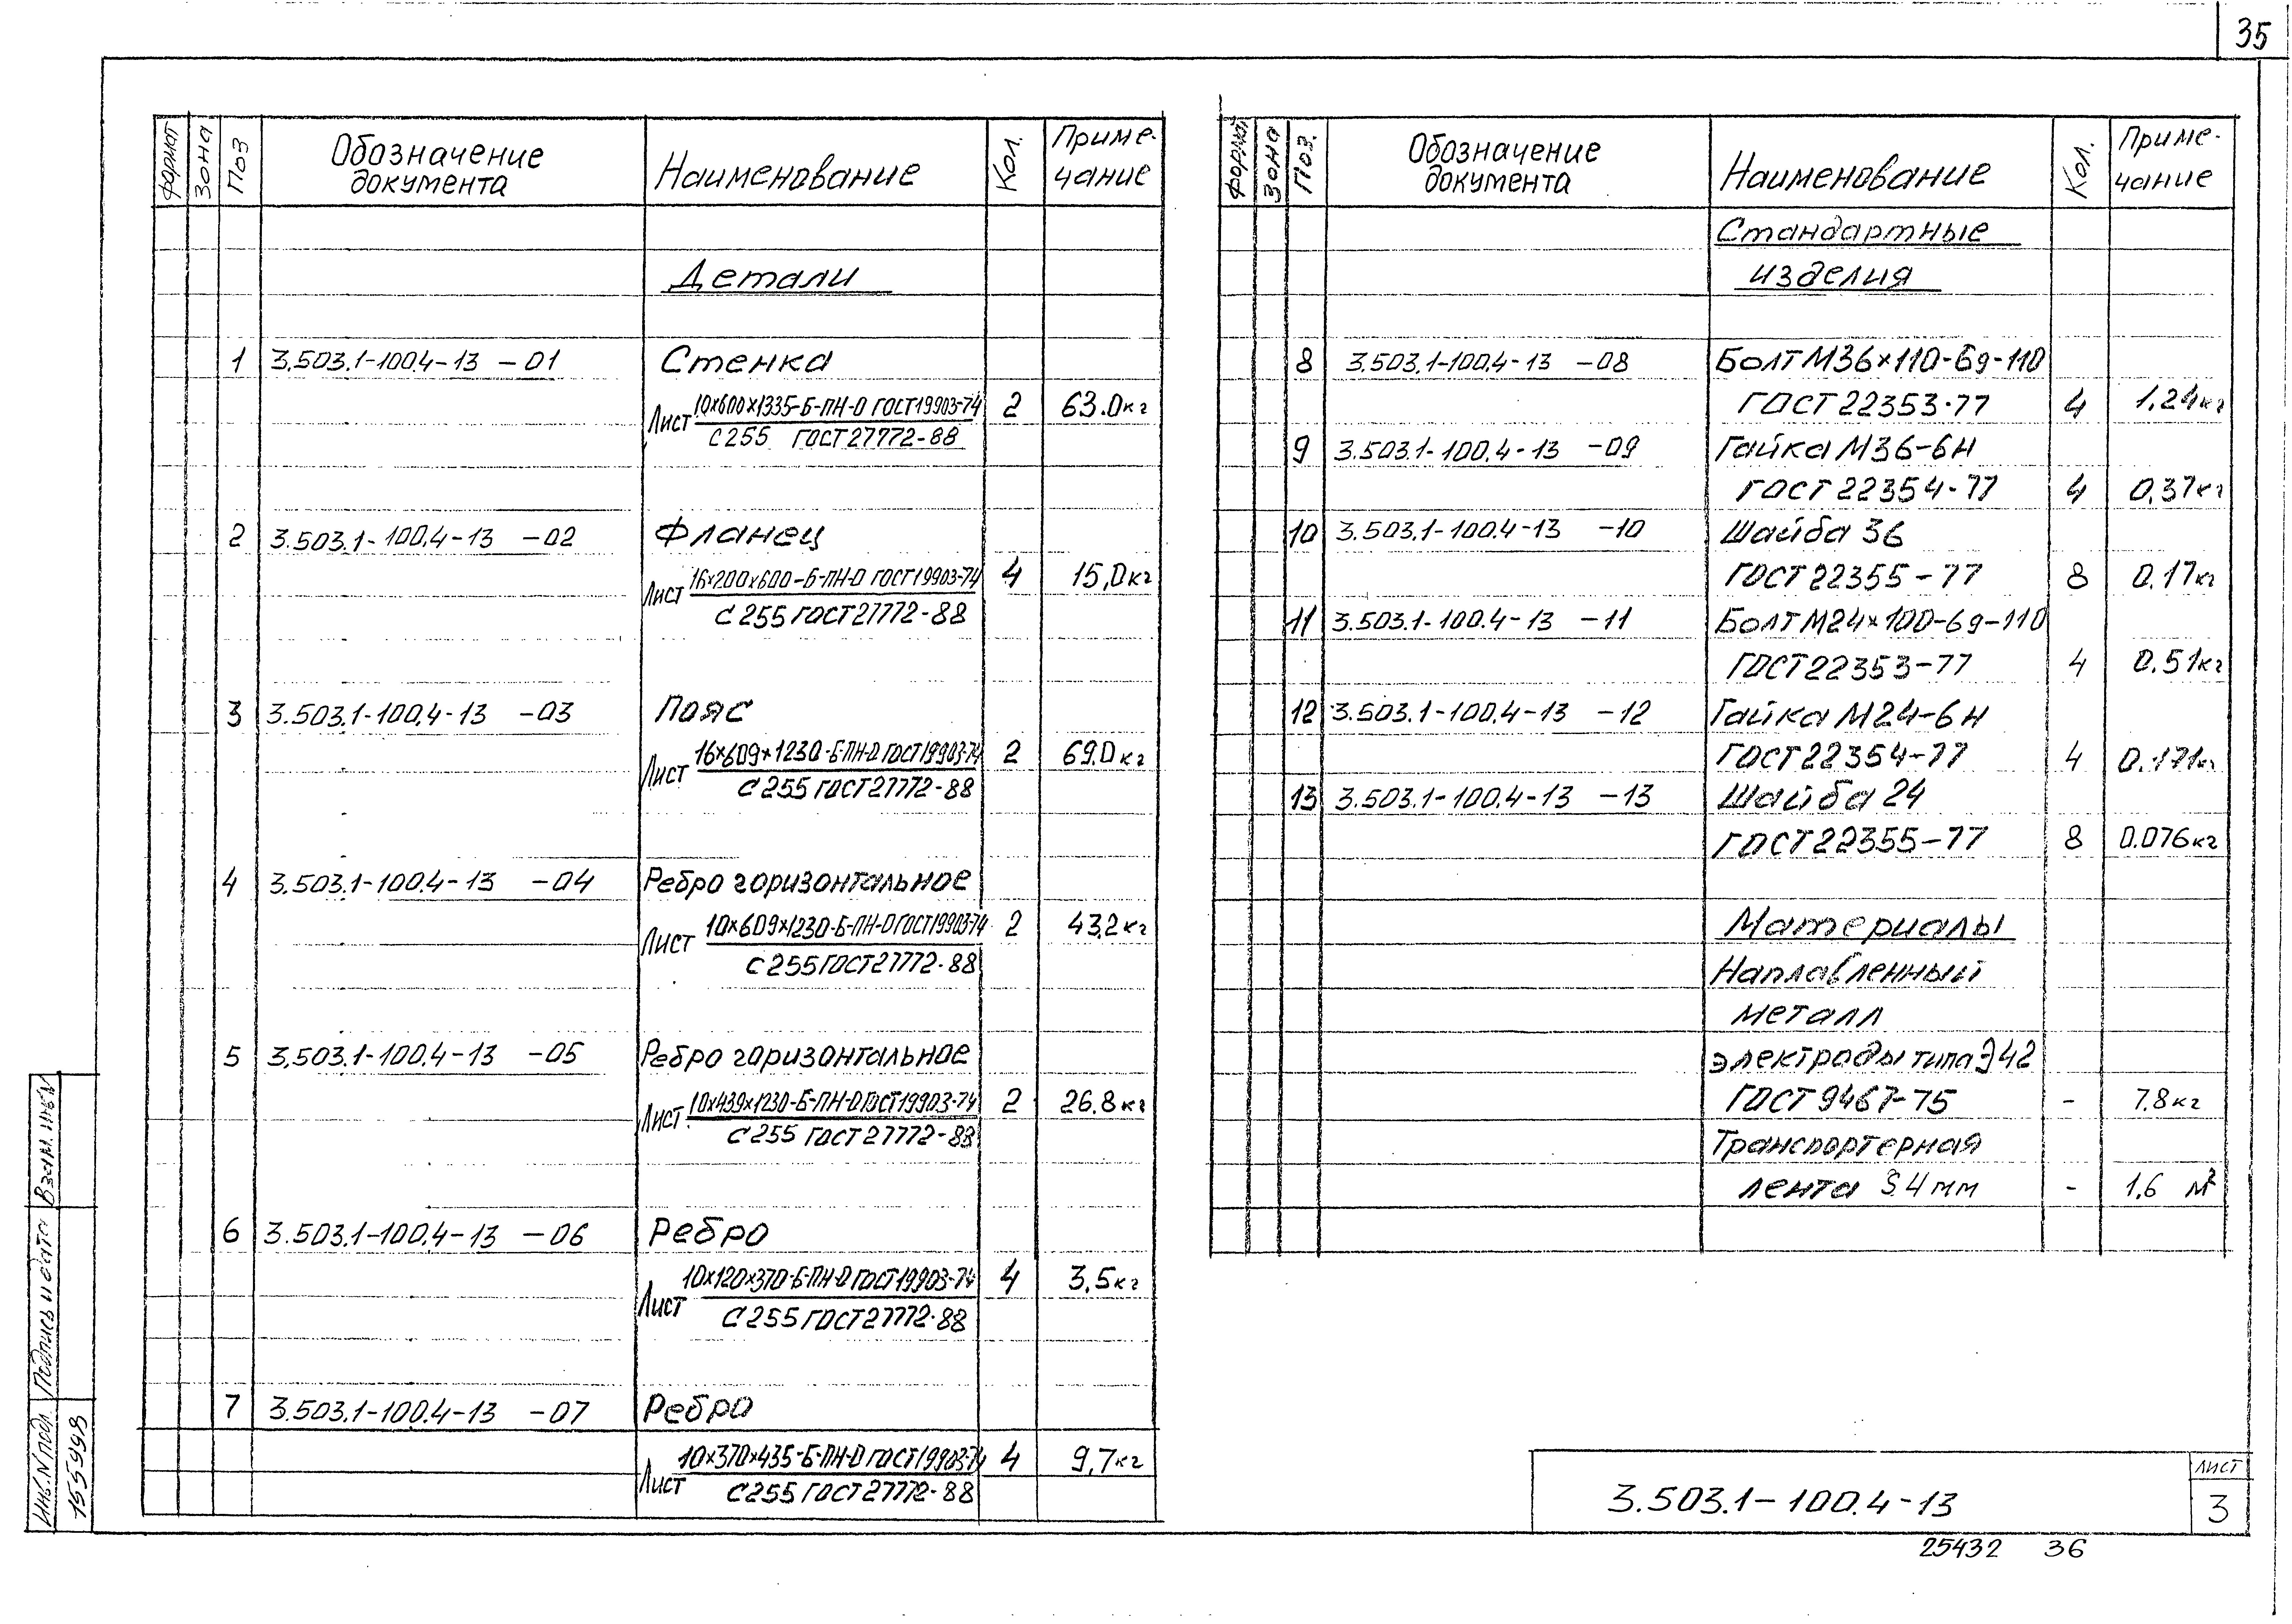 35
Формат Зона Поз Обозначение документа Наименование Кол. Приме-чание
Детали
1 3.503.1-100.4-13 -01 Стенка
Лист 10×600×1335-Б-ПН-О ГОСТ19903-74 2 63.0кг
С255 ГОСТ27772-88
2 3.503.1-100.4-13 -02 Фланец
Лист 16×200×600-Б-ПН-О ГОСТ19903-74 4 15,0кг
С255 ГОСТ27772-88
3 3.503.1-100.4-13 -03 Пояс
Лист 16×609×1230-Б-ПН-О ГОСТ19903-74 2 69.0кг
С255 ГОСТ27772-88
4 3.503.1-100.4-13 -04 Ребро горизонтальное
Лист 10×609×1230-Б-ПН-О ГОСТ19903-74 2 43,2кг
С255 ГОСТ27772-88
5 3.503.1-100.4-13 -05 Ребро горизонтальное
Лист 10×439×1230-Б-ПН-О ГОСТ19903-74 2 26.8кг
С255 ГОСТ27772-88
6 3.503.1-100.4-13 -06 Ребро
Лист 10×120×370-Б-ПН-О ГОСТ19903-74 4 3,5кг
С255 ГОСТ27772-88
7 3.503.1-100.4-13 -07 Ребро
Лист 10×370×435-Б-ПН-О ГОСТ19903-74 4 9,7кг
С255 ГОСТ27772-88
Формат Зона Поз. Обозначение документа Наименование Кол. Приме-чание
Стандартные
изделия
8 3.503.1-100.4-13 -08 Болт М36×110-6g-110
ГОСТ 22353-77 4 1.24кг
9 3.503.1-100.4-13 -09 Гайка М36-6Н
ГОСТ 22354-77 4 0,37кг
10 3.503.1-100.4-13 -10 Шайба 36
ГОСТ 22355-77 8 0.17кг
11 3.503.1-100.4-13 -11 Болт М24×100-6g-110
ГОСТ 22353-77 4 0.51кг
12 3.503.1-100.4-13 -12 Гайка М24-6Н
ГОСТ 22354-77 4 0.171кг
13 3.503.1-100.4-13 -13 Шайба 24
ГОСТ 22355-77 8 0.076кг
Материалы
Наплавленный
металл
электроды типа Э42
ГОСТ 9467-75 - 7.8кг
Транспортерная
лента S.4мм - 1,6 м²
Взам. инв N
Подпись и дата
Инв. N подл.
155998
3.503.1-100.4-13
лист
3
25432 36